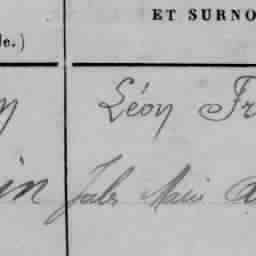 ET SURNO
le.)
y Léon Fr
in Jules Marie A